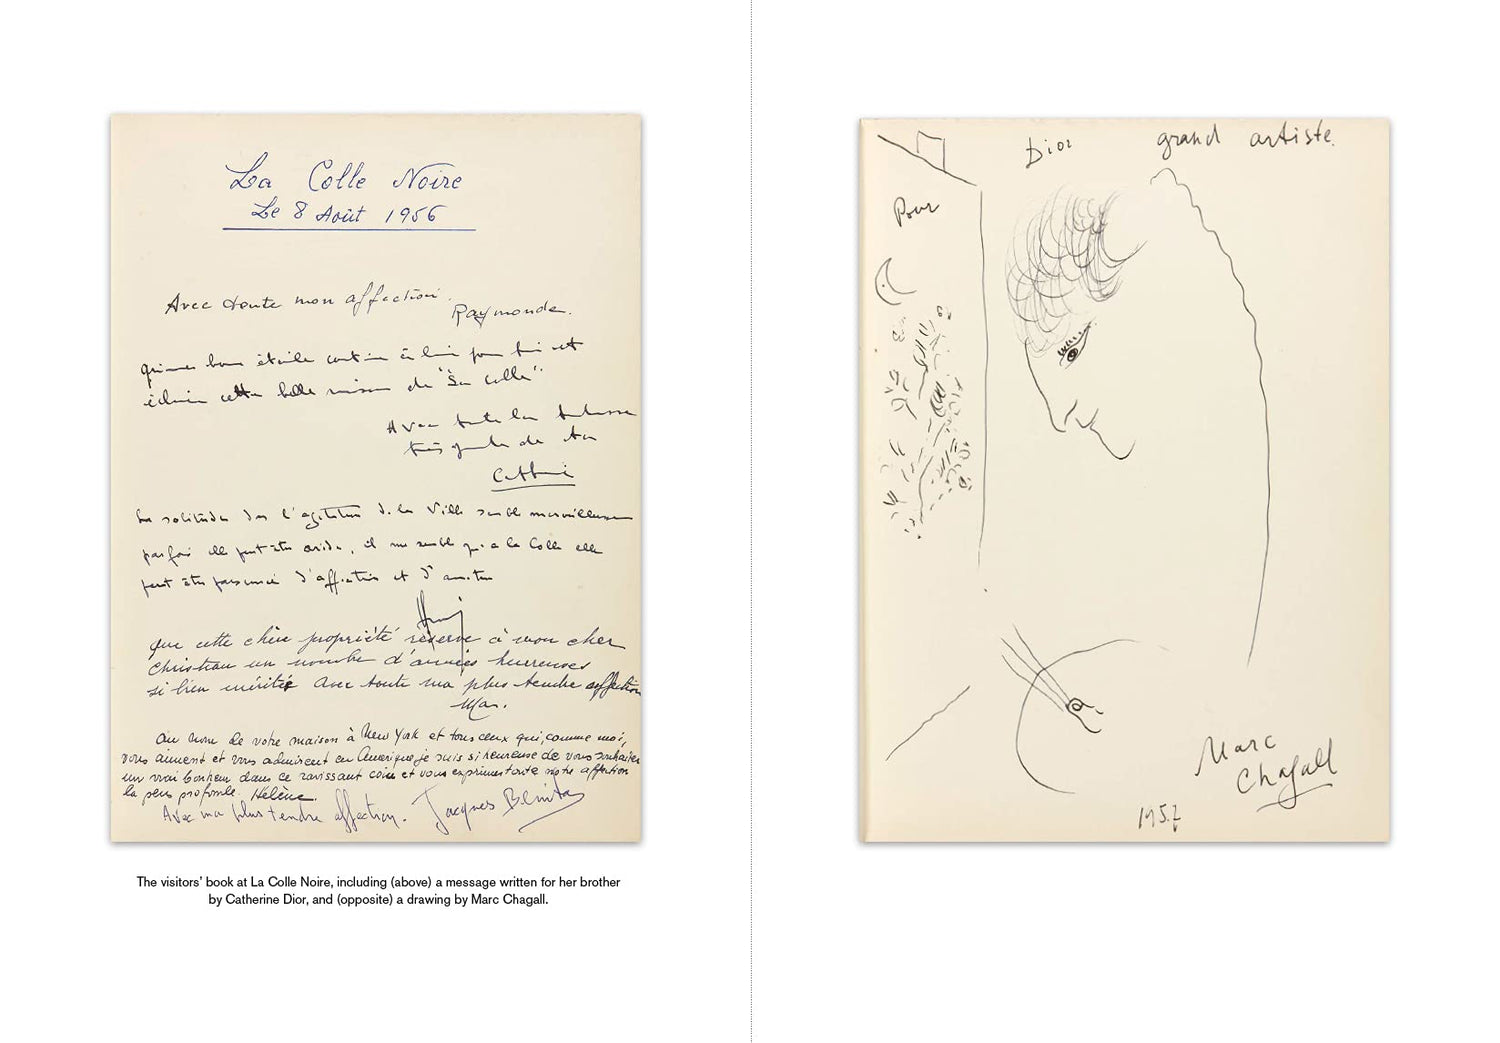 La Colle Noire
Le 8 Août 1956
Avec toute mon affection.
Raymonde.
bonne étoile continue à luire pour toi et
cette belle maison de "La Colle".
Avec toute la tendresse
de ta
Catherine
La solitude l'agitation de la Ville semble merveilleuse
parfois elle peut être aride, il me semble qu'à la Colle elle
peut être d'affection et d'amitié
Que cette chère propriété réserve à mon cher
Christian un nombre d'années heureuses
si bien méritées avec toute ma plus tendre affection
Au nom de votre maison à New York et tous ceux qui, comme moi,
vous aiment et vous admirent en Amérique je suis si heureuse de vous souhaiter
un vrai bonheur dans ce ravissant coin et vous exprimer toute notre affection
la plus profonde. Hélène.
Avec ma plus tendre affection. Jacques Benita
The visitors' book at La Colle Noire, including (above) a message written for her brother
by Catherine Dior, and (opposite) a drawing by Marc Chagall.
Pour
Dior grand artiste.
Marc
Chagall
1957